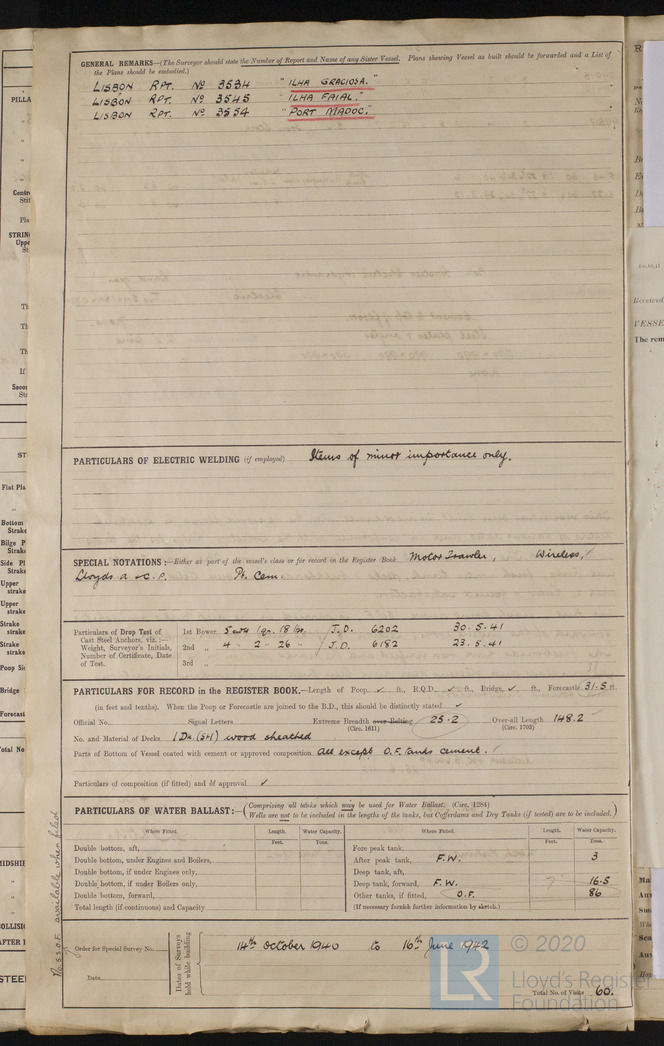 GENERAL REMARKS—(The Surveyor should state the Number of Report and Name of any Sister Vessel. Plans showing Vessel as built should be forwarded and a List of
the Plans should be embodied.)
LISBON RPT. No 3534 "ILHA GRACIOSA."
LISBON RPT. No 3545 "ILHA FAIAL."
LISBON RPT. No 3554 "PORT MADOC."
PARTICULARS OF ELECTRIC WELDING (if employed) Items of minor importance only.
SPECIAL NOTATIONS:—Either as part of the vessel's class or for record in the Register Book Motor Trawler, Wireless,
Lloyds A & C.P. Pt. Cem.
Particulars of Drop Test of
Cast Steel Anchors, viz.:—
Weight, Surveyor's Initials,
Number of Certificate, Date
of Test.
1st Bower 5 cwts 1 qr. 18 lbs. / J.D. 6202 30.5.41
2nd „ 4 - 2 - 26 - / J.D. 6182 23.5.41
3rd „
PARTICULARS FOR RECORD in the REGISTER BOOK.—Length of Poop ✓ ft., R.Q.D. ✓ ft., Bridge ✓ ft., Forecastle 31.5 ft.
(in feet and tenths). When the Poop or Forecastle are joined to the B.D., this should be distinctly stated ✓
Official No. Signal Letters Extreme Breadth over Belting 25.2 Over-all Length 148.2
(Circ. 1611) (Circ. 1703)
No. and Material of Decks 1 Dk. (stl) wood sheathed
Parts of Bottom of Vessel coated with cement or approved composition All except O.F. tanks cement.
Particulars of composition (if fitted) and of approval ✓
PARTICULARS OF WATER BALLAST:—
(Comprising all tanks which may be used for Water Ballast. (Circ. 1284)
Wells are not to be included in the lengths of the tanks, but Cofferdams and Dry Tanks (if tested) are to be included.)
Where Fitted. Length. Water Capacity. Where Fitted. Length. Water Capacity.
Feet. Tons. Feet. Tons.
Double bottom, aft, Fore peak tank,
Double bottom, under Engines and Boilers, After peak tank, F.W. 3
Double bottom, if under Engines only, Deep tank, aft,
Double bottom, if under Boilers only, Deep tank, forward, F.W. 16.5
Double bottom, forward, Other tanks, if fitted, O.F. 86
Total length (if continuous) and Capacity (If necessary furnish further information by sketch.)
Order for Special Survey No.
Date
Dates of Surveys
held while building
14th October 1940 to 16th June 1942
Total No. of Visits 60.
© 2020
LR
Lloyd's Register
Foundation